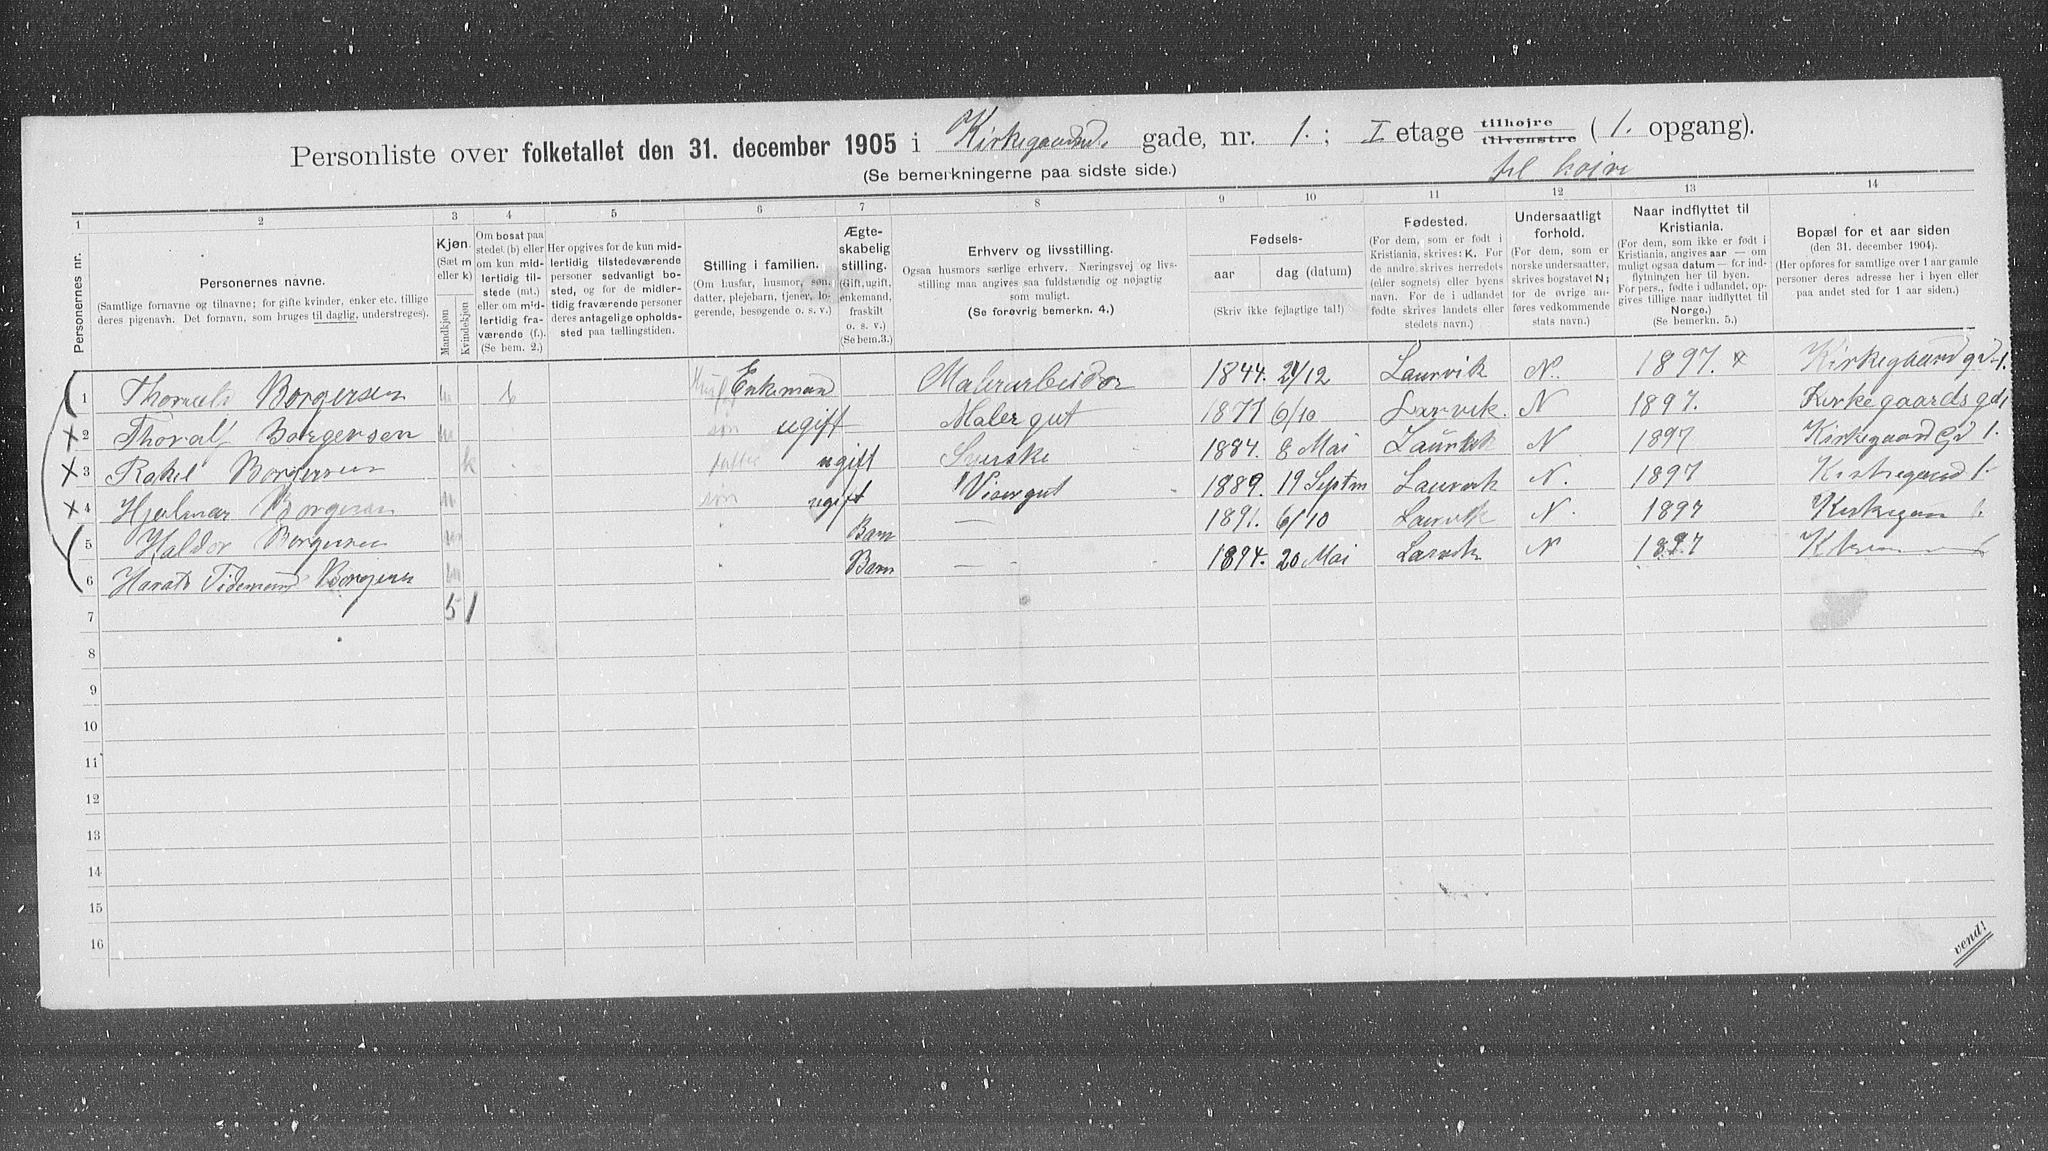 Personliste over folketallet den 31. december 1905 i Kirkegaards gade, nr. 1. ; I etage tilhøjre tilvenstre ( 1. opgang).
(Se bemerkningerne paa sidste side.)
til højre
1 2 3 4 5 6 7 8 9 10 11 12 13 14
Personernes nr.
Personernes navne.
(Samtlige fornavne og tilnavne; for gifte kvinder, enker etc. tillige deres pigenavn. Det fornavn, som bruges til daglig, understreges).
Kjøn.
(Sæt m eller k)
Mandkjøn
Kvindekjøn
Om bosat paa stedet (b) eller om kun midlertidig tilstede (mt.) eller om midlertidig fraværende (f.).
(Se bem. 2.)
Her opgives for de kun midlertidig tilstedeværende personer sedvanligt bosted, og for de midlertidig fraværende personer deres antagelige opholdssted paa tællingstiden.
Stilling i familien.
(Om husfar, husmor, søn, datter, plejebarn, tjener, logerende, besøgende o. s. v.)
Ægteskabelig stilling.
(Gift, ugift, enkemand, fraskilt o. s. v.)
(Se bem.3.)
Erhverv og livsstilling.
Ogsaa husmors særlige erhverv. Næringsvej og livsstilling maa angives saa fuldstændig og nøjagtig som muligt.
(Se forøvrig bemerkn. 4.)
Fødsels-
aar dag (datum)
(Skriv ikke fejlagtige tal!)
Fødested.
(For dem, som er født i Kristiania, skrives: K. For de andre skrives herredets (eller sognets) eller byens navn. For de i udlandet fødte skrives landets eller stedets navn.)
Undersaatligt forhold.
(For dem, som er norske undersaatter, skrives bogstavet N; for de øvrige anføres vedkommende stats navn.)
Naar indflyttet til Kristiania.
(For dem, som ikke er født i Kristiania, angives aar — om muligt ogsaa datum — for indflytningen her til byen. For pers., fødte i udlandet, opgives tillige naar indflyttet til Norge.)
(Se bemerkn. 5.)
Bopæl for et aar siden
(den 31. december 1904).
(Her opføres for samtlige over 1 aar gamle personer deres adresse her i byen eller paa andet sted for 1 aar siden.)
1 Borgersen m b Enkmand Malerarbeider 1844. 21/12 Laurvik N. 1897. x Kirkegaardgd. 1.
x 2 Thoralf Borgersen m søn ugift Maler gut 1877 6/10 Larvik. N 1897. Kirkegaards gd 1
x 3 Rakel Borgersen k datter ugift 1887. 8 Mai Laurvik N 1897 Kirkegaard Gd 1.
x 4 Hjalmar Borgersen m søn ugift Visergut 1889. 19 Septm Laurvik N. 1897 Kirkegaard 1.
5 Haldor Borgersen m Barn — 1891. 6/10 Laurvik N. 1897 1.
6 Tidemand Borgersen m Barn — 1894. 20 Mai Larvik N 1897
7 5 1
8
9
10
11
12
13
14
15
16
vend!